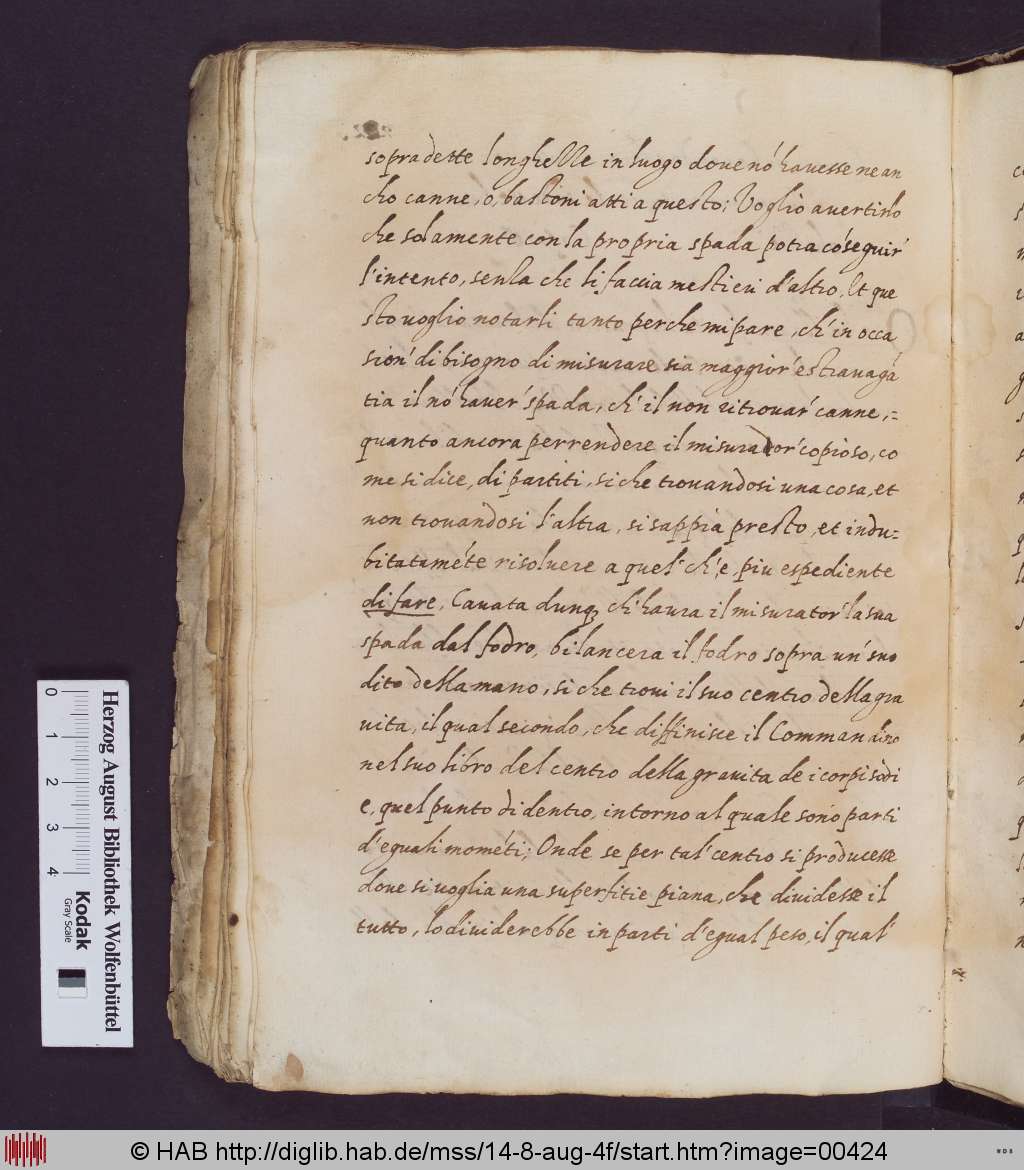 sopradette longhelle in luogo doue nó hauesse ne an
cho canne, o, bastoni atti a questo; Voglio auertirlo
che solamente con la propria spada potra cóseguir'
l'intento, senza che li faccia mestieri d'altro. Et que
sto uoglio notarli tanto perche mi pare, ch' in occa
sion' di bisogno di misurare sia maggior' estrauagã
tia il nó hauer' spada, ch' il non ritrouar' canne,=
quanto ancora per rendere il misurador' copioso, co
me si dice, di partiti, si che trouandosi una cosa, et
non trouandosi l'altra, si sappia presto, et indu=
bitataméte risoluere a quel' ch', e, piu espediente
di fare. Cauata dunq; ch' haura il misurator' la sua
spada dal fodro, bilancera il fodro sopra un' suo
dito della mano, si che troui il suo centro della gra
uita, il qual secondo, che diffinisce il Commandino
nel suo libro del centro della grauita de i corpi sodi
e, quel punto di dentro, intorno al quale sono parti
d'eguali mométi; Onde se per tal' centro si producesse
doue si uoglia una superfitie piana, che diuidesse il
tutto, lo diuiderebbe in parti d'egual peso, il qual'
0 1 2 3 4
Herzog August Bibliothek Wolfenbüttel
Kodak
Gray Scale
© HAB http://diglib.hab.de/mss/14-8-aug-4f/start.htm?image=00424